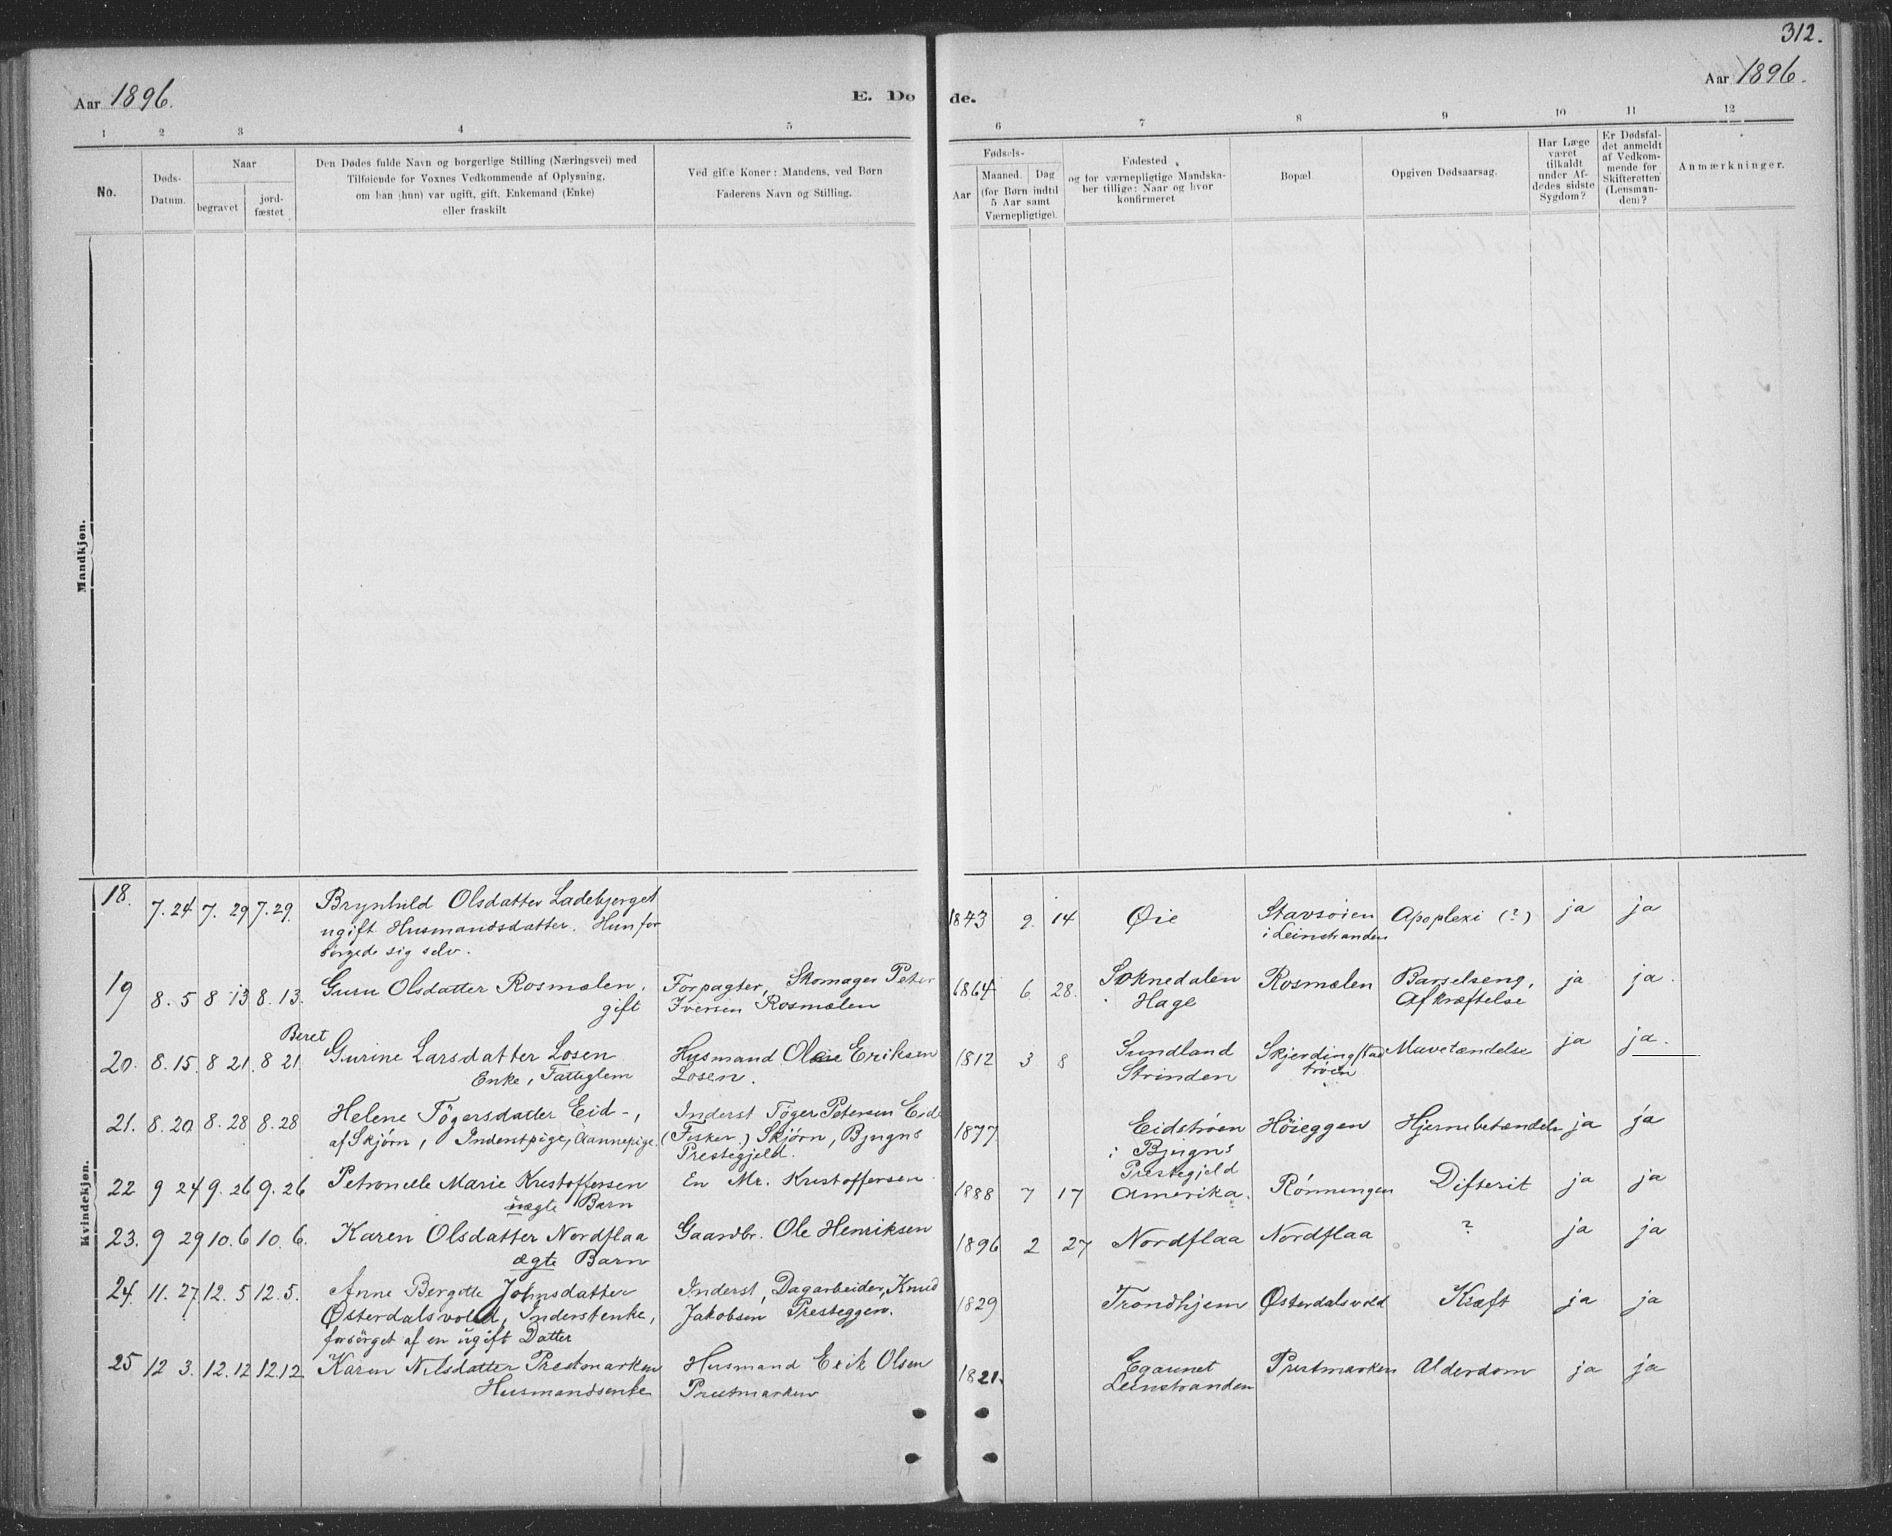 312.
Aar 1896.
E. Døde.
Aar 1896.
1 2 3 4 5 6 7 8 9 10 11 12
No.
Døds-
Datum.
Naar
begravet
jord-
fæstet
Den Dødes fulde Navn og borgerlige Stilling (Næringsvei) med
Tilføiende for Voxnes Vedkommende af Oplysning,
om han (hun) var ugift, gift, Enkemand (Enke)
eller fraskilt
Ved gifte Koner: Mandens, ved Børn
Faderens Navn og Stilling.
Fødsels-
Aar
Maaned. Dag
(for Børn indtil
5 Aar samt
Værnepligtige).
Fødested
og for værnepligtige Mandska-
ber tillige: Naar og hvor
konfirmeret
Bopæl.
Opgiven Dødsaarsag.
Har Læge
været
tilkaldt
under Af-
dødes sidste
Sygdom?
Er Dødsfal-
det anmeldt
af Vedkom-
mende for
Skifteretten
(Lensman-
den)?
Anmærkninger.
Mandkjøn.
Kvindekjøn.
18. 7. 24. 7. 29 7. 29. Brynhild Olsdatter Ladebjerget 1843 9. 14 Øie Stavsøien Apoplexi (?) ja ja
ugift Husmandsdatter. Hun for i Leinstranden
sørgede sig selv.
19 8. 5 8 13 8. 13. Guru Olsdatter Rosmælen, Forpagter, Skomager Peter 1864 6. 28. Soknedalen Rosmælen Barselseng, ja ja.
gift Iversen Rosmælen Hage Afkræftelse
Beret
20. 8. 15. 8 21. 8 21. Gurine Larsdatter Losen Husmand Ole Eriksen 1812 3 8 Sundland Skjerdingstad Mavetændelse ja ja.
Enke, Fattiglem Losen. Strinden trøen
21. 8. 20. 8. 28 8. 28 Helene Tøgersdatter Eid-, Inderst Tøger Petersen Eid 1877 Eidstrøen Høieggen Hjernebetændelse ja ja
af Skjørn, Inderstpige, (Fisker) Skjørn, Bjugns i Bjugns
Prestegjeld. Prestegjeld
22 9 24 9. 26 9. 26 Petronelle Marie Kristoffersen En Mr. Kristoffersen 1888 7 17 Amerika. Rønningen Difterit ja ja
uægte Barn
23. 9 29 10. 6 10. 6. Karen Olsdatter Nordflaa Gaardbr. Ole Henriksen 1896 2 27 Nordflaa Nordflaa ? ja ja
ægte Barn
24. 11. 27. 12. 5 12. 5. Anne Bergitte Johnsdatter Inderst, Dagarbeider, Knud 1829 Trondhjem Østerdalsvold Kræft ja ja
Østerdalsvold, Inderstenke, Jakobsen Presteggen.
forsørget af en ugift Datter
25 12 3. 12. 12 12. 12 Karen Nilsdatter Prestmarken Husmand Erik Olsen 1821. Egaunet Prestmarken Alderdom ja ja
Husmandsenke Prestmarken Leinstranden